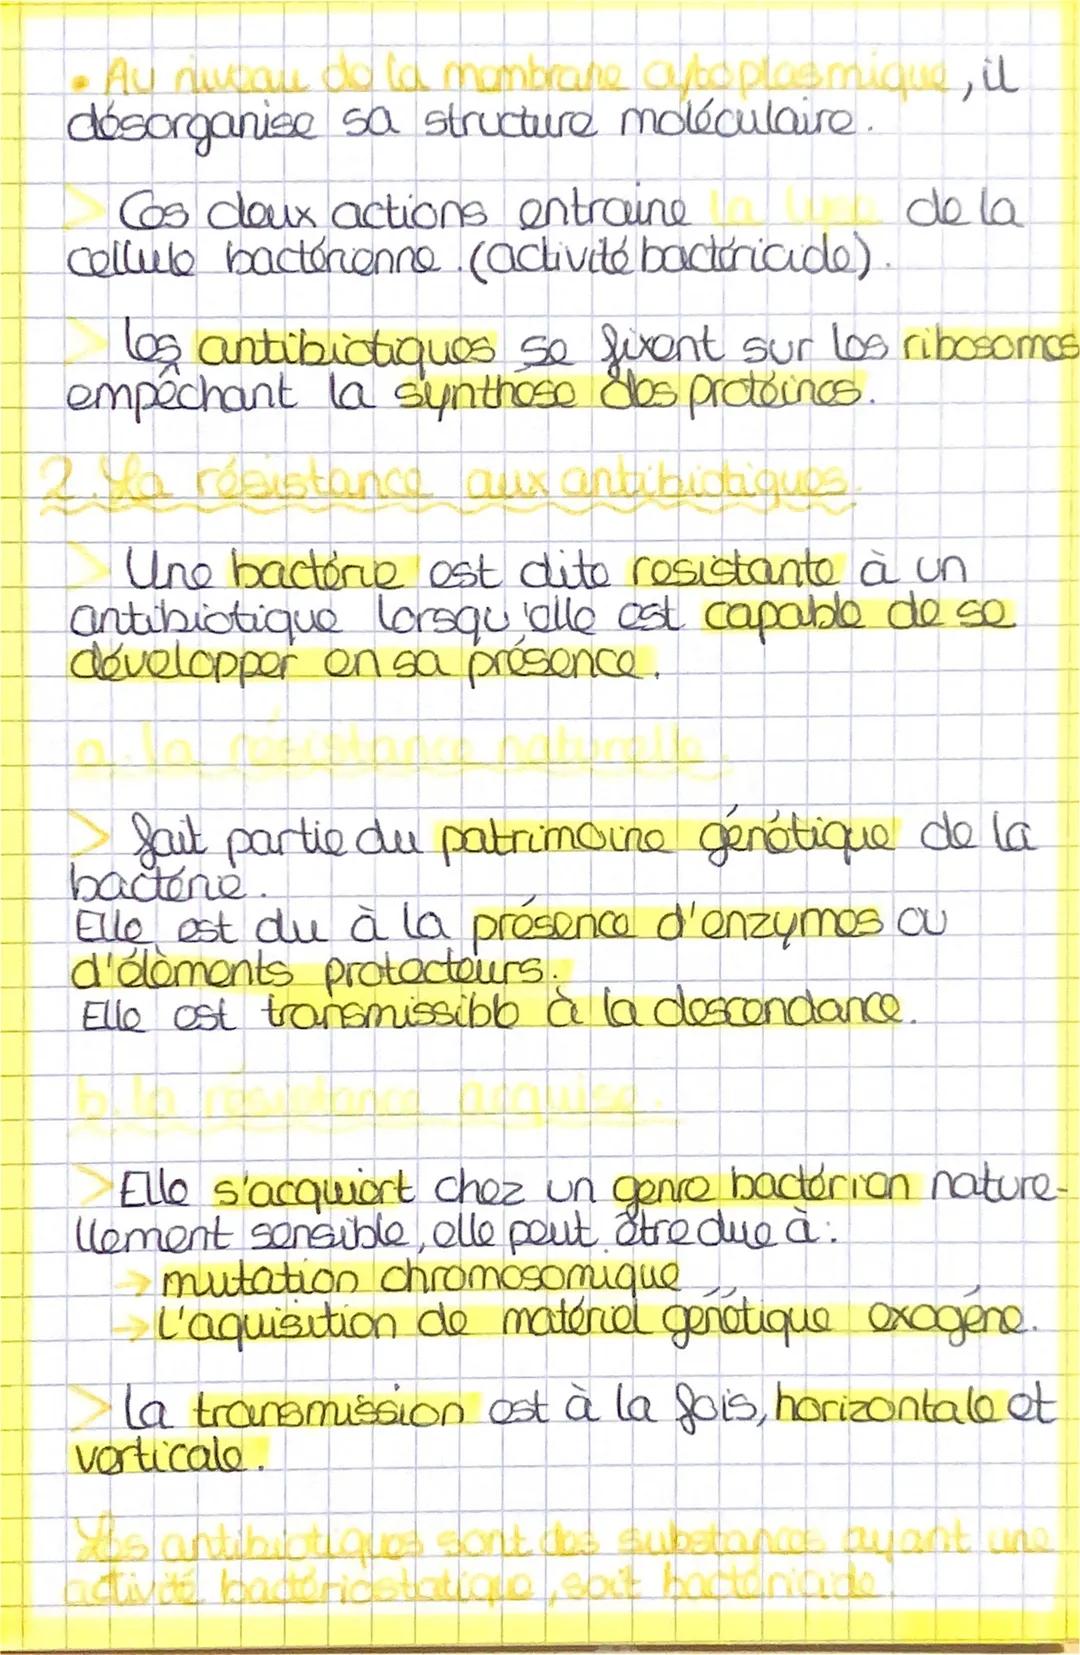 • Au niveau de la membrane cytoplasmique, il
désorganise sa structure moléculaire.
> Ces deux actions entraine la lyse de la
cellule bactérienne. (activité bactéricide).
> les antibiotiques se fixent sur les ribosomes
empêchant la synthese des protéines.
2. La résistance aux antibiotiques.
> Une bactérie est dite resistante à un
antibiotique lorsqu'elle est capable de se
développer en sa présence.
a. la résistance naturelle.
> fait partie du patrimoine génétique de la
bactérie.
Elle est du à la présence d'enzymes ou
d'élèments protecteurs.
Elle est transmissible à la descendance.
b. la résistance acquise.
> Elle s'acquiert chez un genre bactérien nature-
llement sensible, elle peut être due à :
→ mutation chromosomique
→ L'aquisition de matériel génétique exogéne.
> La transmission est à la fois, horizontale et
verticale.
Les antibiotiques sont des substances ayant une
activité bactériostatique, soit bactéricide.